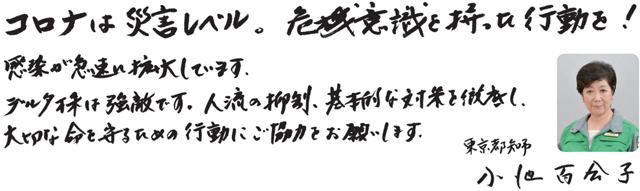 コロナは災害レベル。危機意識を持った行動を!
感染が急速に拡大しています。
デルタ株は強敵です。人流の抑制、基本的な対策を徹底し、
大切な命を守るための行動にご協力をお願いします。
東京都知事
小池百合子